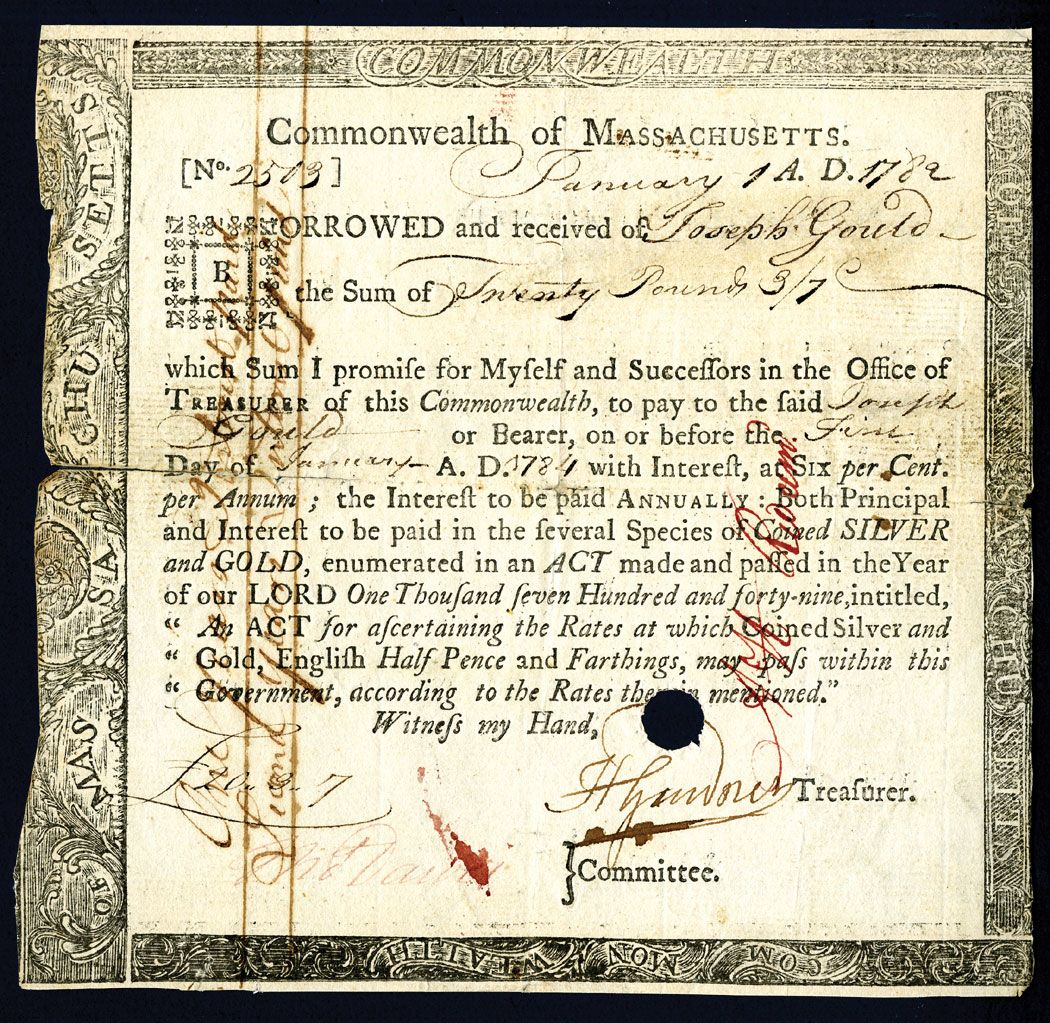 COMMONWEALTH
Commonwealth of MASSACHUSETTS.
[No. 2503]
January 1 A. D. 1782
BORROWED and received of Joseph Gould
the Sum of Twenty Pounds 3/7
which Sum I promiſe for Myſelf and Succeſſors in the Office of
TREASURER of this Commonwealth, to pay to the ſaid Joseph
Gould or Bearer, on or before the First
Day of January A. D. 1784 with Intereſt, at SIX per Cent.
per Annum ; the Intereſt to be paid ANNUALLY : Both Principal
and Intereſt to be paid in the ſeveral Species of Coined SILVER
and GOLD, enumerated in an ACT made and paſſed in the Year
of our LORD One Thouſand ſeven Hundred and forty-nine, intitled,
“ An ACT for aſcertaining the Rates at which Coined Silver and
“ Gold, Engliſh Half Pence and Farthings, may paſs within this
“ Government, according to the Rates therein mentioned.”
Witneſs my Hand,
£20.3.7
H Gardner Treaſurer.
} Committee.
OF MAS SA CHU SETTS
COMMONWEALTH